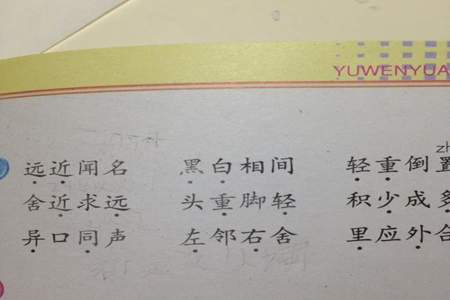 YUWENYUA
zh
远近闻名 黑白相间 轻重倒置
舍近求远 头重脚轻 积少成多
异口同声 左邻右舍 里应外合